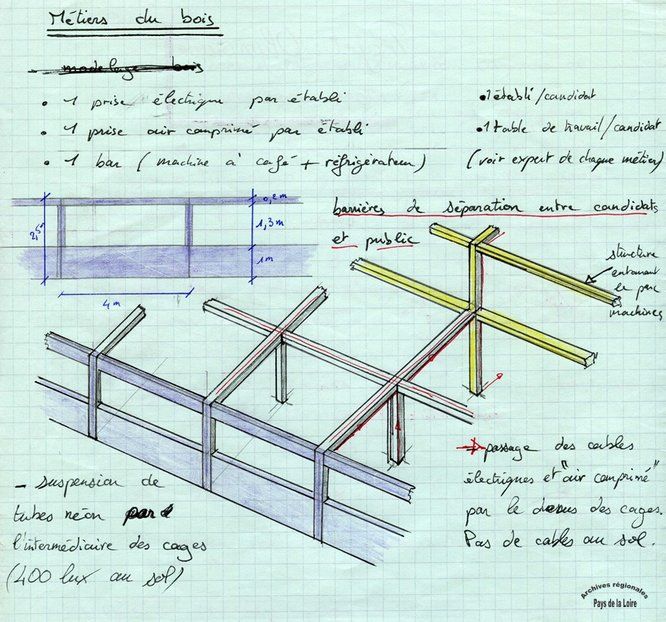 Métiers du bois
modelage bois
• 1 prise électrique par établi
• 1 prise air comprimé par établi
• 1 bar (machine à café + réfrigérateur)
• 1 établi/candidat
• 1 table de travail/candidat
(voir expert de chaque métier)
barrières de séparation entre candidats
et public
0,2m
1,3m
1m
2,5m
4m
structure
entourant
le parc
machines
- suspension de
tubes néon par
l'intermédiaire des cages
(400 lux au sol)
passage des cables
électriques et "air comprimé"
par le dessus des cages.
Pas de cables au sol.
Archives régionales
Pays de la Loire